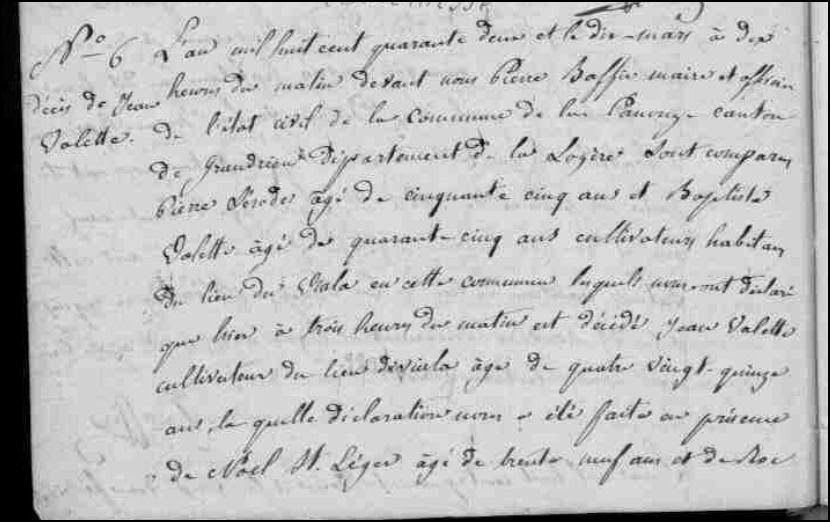 N.° 6 L'an mil huit cent quarante deux et le dix-mars à dix
décès de Jean heures du matin devant nous Pierre Baffie maire et officier
Valette. de l'état civil de la commune de la Panouze canton
de Grandrieu département de la Lozère sont comparu
Pierre âgé de cinquante cinq ans et Baptiste
Valette âgé de quarante cinq ans cultivateurs habitan
du lieu du Viala en cette commune lesquels nous ont déclaré
que hier à trois heures du matin est décédé Jean Valette
cultivateur du lieu du viala âge de quatre vingt-quinze
ans, la quelle déclaration nous a été faite en présence
de Noël St. Léger âgé de trente neuf ans et de Roc